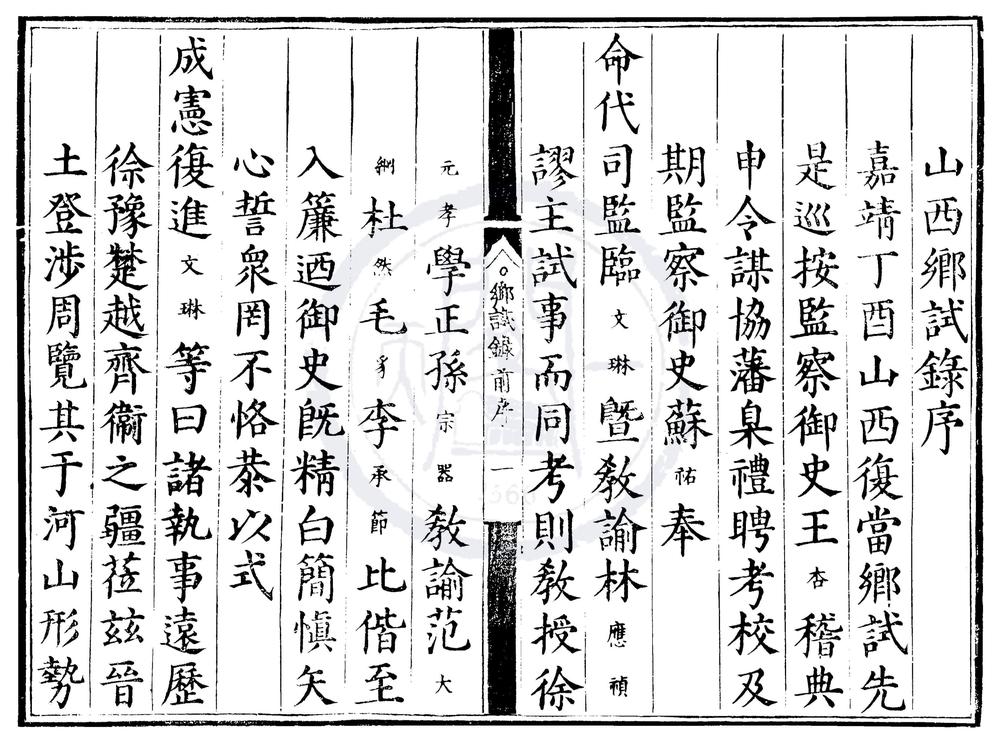 山西鄉試錄序
嘉靖丁酉山西復當鄉試先
是巡按監察御史王杏稽典
申令謀協藩臬禮聘考校及
期監察御史蘇祐奉
命代司監臨文琳暨教諭林應禎
謬主試事而同考則教授徐
鄉試錄前序 一
元孝學正孫宗器教諭范大
綱杜然毛豸李承節比偕至
入簾迺御史既精白簡慎矢
心誓眾罔不恪恭以式
成憲復進文琳等曰諸執事遠歷
徐豫楚越齊衞之疆莅茲晉
土登涉周覽其于河山形勢